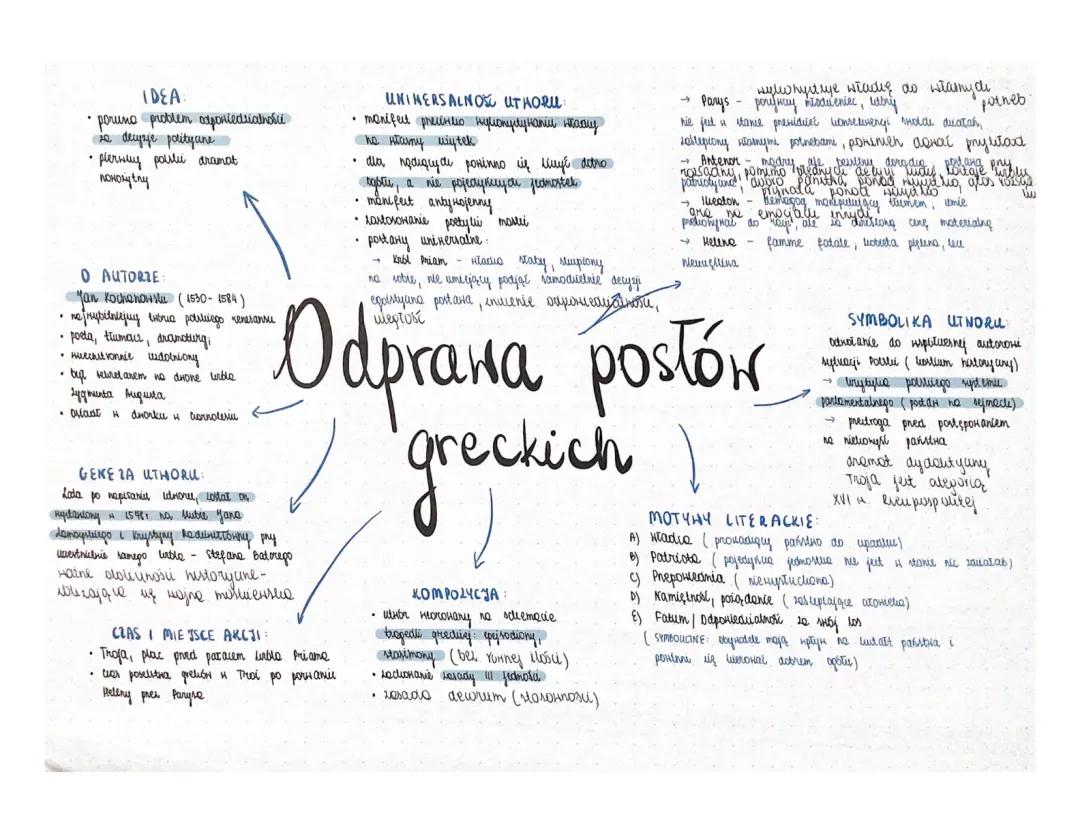 IDEA:
• porusza problem odpowiedzialności
za decyzje polityczne
• pierwszy polski dramat
nowożytny
O AUTORZE:
Jan Kochanowski (1530-1584)
• najwybitniejszy twórca polskiego renesansu
• poeta, tłumacz, dramaturg;
• wszechstronnie uzdolniony
• był sekretarzem na dworze króla
Zygmunta Augusta
• osiadł w dworku w Czarnolesiu
GENEZA UTWORU:
Lata po napisaniu utworu, został on
wystawiony w 1578r. na ślubie Jana
Zamoyskiego i Krystyny Radziwiłłówny przy
uczestnictwie samego króla - Stefana Batorego
ważne okoliczności historyczne -
zbliżająca się wojna moskiewska
CZAS I MIEJSCE AKCJI:
• Troja, plac przed pałacem króla Priama
• czas poselstwa greków w Troi po porwaniu
Heleny przez Parysa
UNIWERSALNOŚĆ UTWORU:
• manifest przeciwko wykorzystywaniu władzy
na własny użytek
• dla rządzących powinno się liczyć dobro
ogółu, a nie pojedynczych jednostek
• manifest antywojenny
• zastosowanie poetyki maski
• postawy uniwersalne:
→ Król Priam - władca słaby, skupiony
na sobie, nie umiejący podjąć samodzielnie decyzji
egoistyczna postawa, znużenie odpowiedzialnością,
uległość
wykorzystuje władzę do własnych
potrzeb
→ Parys - porywczy młodzieniec, który
nie jest w stanie przewidzieć konsekwencji swoich działań,
zaślepiony własnymi potrzebami, powinien dawać przykład
→ Antenor - mądry, ale bezsilny doradca, postawa pry
rozsądny, pomimo błędnych decyzji
patriotyczna, dobro państwa ponad wszystko, głos rozsądku
→ Iketaon - demagog manipulujący tłumem, umie
gra na emocjach innych
przekonywać do racji, ale za określoną cenę materialną
→ Helena - famme fatale, kobieta piękna, lecz
nieszczęśliwa
Odprawa posłów
greckich
SYMBOLIKA UTWORU:
odwołanie do współczesnej autorowi
sytuacji Polski (kostium historyczny)
→ krytyka polskiego systemu
parlamentarnego (posłów na sejmach)
→ przestroga przed postępowaniem
na niekorzyść państwa
dramat dydaktyczny
Troja jest alegorią
XVI w. Rzeczpospolitej
KOMPOZYCJA:
• utwór wzorowany na schemacie
tragedii greckiej: epejsodiony,
stasimony (bez równej ilości)
• zachowanie zasady III jedności
• zasada decorum (stosowności)
MOTYWY LITERACKIE:
A) Władca (prowadzący państwo do upadku)
B) Patriota (pojedyncza jednostka nie jest w stanie nic zdziałać)
C) Przepowiednia (niewysłuchana)
D) Namiętność, pożądanie (zaślepiające człowieka)
E) Fatum / Odpowiedzialność za swój los
(SYMBOLICZNE: obywatele mają wpływ na kształt państwa i
powinni się kierować dobrem ogółu)